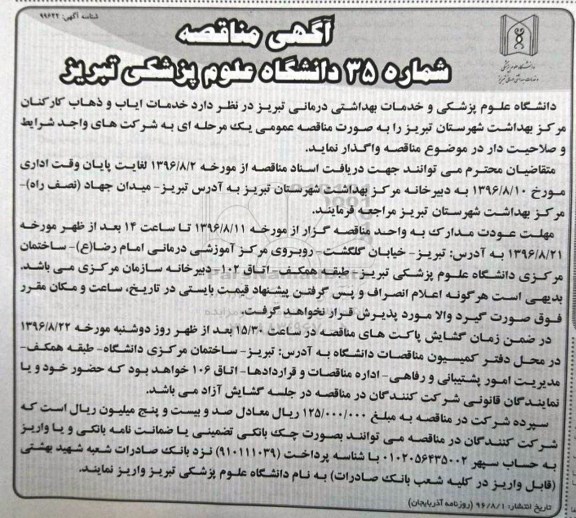 شناسه آگهی: ۹۹۶۲۲
آگهی مناقصه
شماره ۳۵ دانشگاه علوم پزشکی تبریز
دانشگاه علوم پزشکی و خدمات بهداشتی درمانی تبریز در نظر دارد خدمات ایاب و ذهاب کارکنان
مرکز بهداشت شهرستان تبریز را به صورت مناقصه عمومی یک مرحله ای به شرکت های واجد شرایط
و صلاحیت دار در موضوع مناقصه واگذار نماید.
متقاضیان محترم می توانند جهت دریافت اسناد مناقصه از مورخه ۱۳۹۶/۸/۲ لغایت پایان وقت اداری
مورخ ۱۳۹۶/۸/۱۰ به دبیرخانه مرکز بهداشت شهرستان تبریز به آدرس تبریز- میدان جهاد (نصف راه)-
مرکز بهداشت شهرستان تبریز مراجعه فرمایند.
مهلت عودت مدارک به واحد مناقصه گزار از مورخه ۱۳۹۶/۸/۱۱ تا ساعت ۱۴ بعد از ظهر مورخه
۱۳۹۶/۸/۲۱ به آدرس: تبریز- خیابان گلگشت- روبروی مرکز آموزشی درمانی امام رضا(ع)- ساختمان
مرکزی دانشگاه علوم پزشکی تبریز- طبقه همکف- اتاق ۱۰۲- دبیرخانه سازمان مرکزی می باشد.
بدیهی است هرگونه اعلام انصراف و پس گرفتن پیشنهاد قیمت بایستی در تاریخ، ساعت و مکان مقرر
فوق صورت گیرد والا مورد پذیرش قرار نخواهد گرفت.
در ضمن زمان گشایش پاکت های مناقصه در ساعت ۱۵/۳۰ بعد از ظهر روز دوشنبه مورخه ۱۳۹۶/۸/۲۲
در محل دفتر کمیسیون مناقصات دانشگاه به آدرس: تبریز- ساختمان مرکزی دانشگاه- طبقه همکف-
مدیریت امور پشتیبانی و رفاهی- اداره مناقصات و قراردادها- اتاق ۱۰۶ خواهد بود که حضور خود و یا
نمایندگان قانونی شرکت کنندگان در مناقصه در جلسه گشایش آزاد می باشد.
سپرده شرکت در مناقصه به مبلغ ۱۲۵/۰۰۰/۰۰۰ ریال معادل صد و بیست و پنج میلیون ریال است که
شرکت کنندگان در مناقصه می توانند بصورت چک بانکی تضمینی یا ضمانت نامه بانکی و یا واریز
به حساب سپهر ۰۱۰۲۰۵۶۴۳۵۰۰۲ با شناسه پرداخت (۹۱۰۱۱۱۰۳۹) نزد بانک صادرات شعبه شهید بهشتی
(قابل واریز در کلیه شعب بانک صادرات) به نام دانشگاه علوم پزشکی تبریز واریز نمایند.
تاریخ انتشار: ۹۶/۸/۱ (روزنامه آذربایجان)